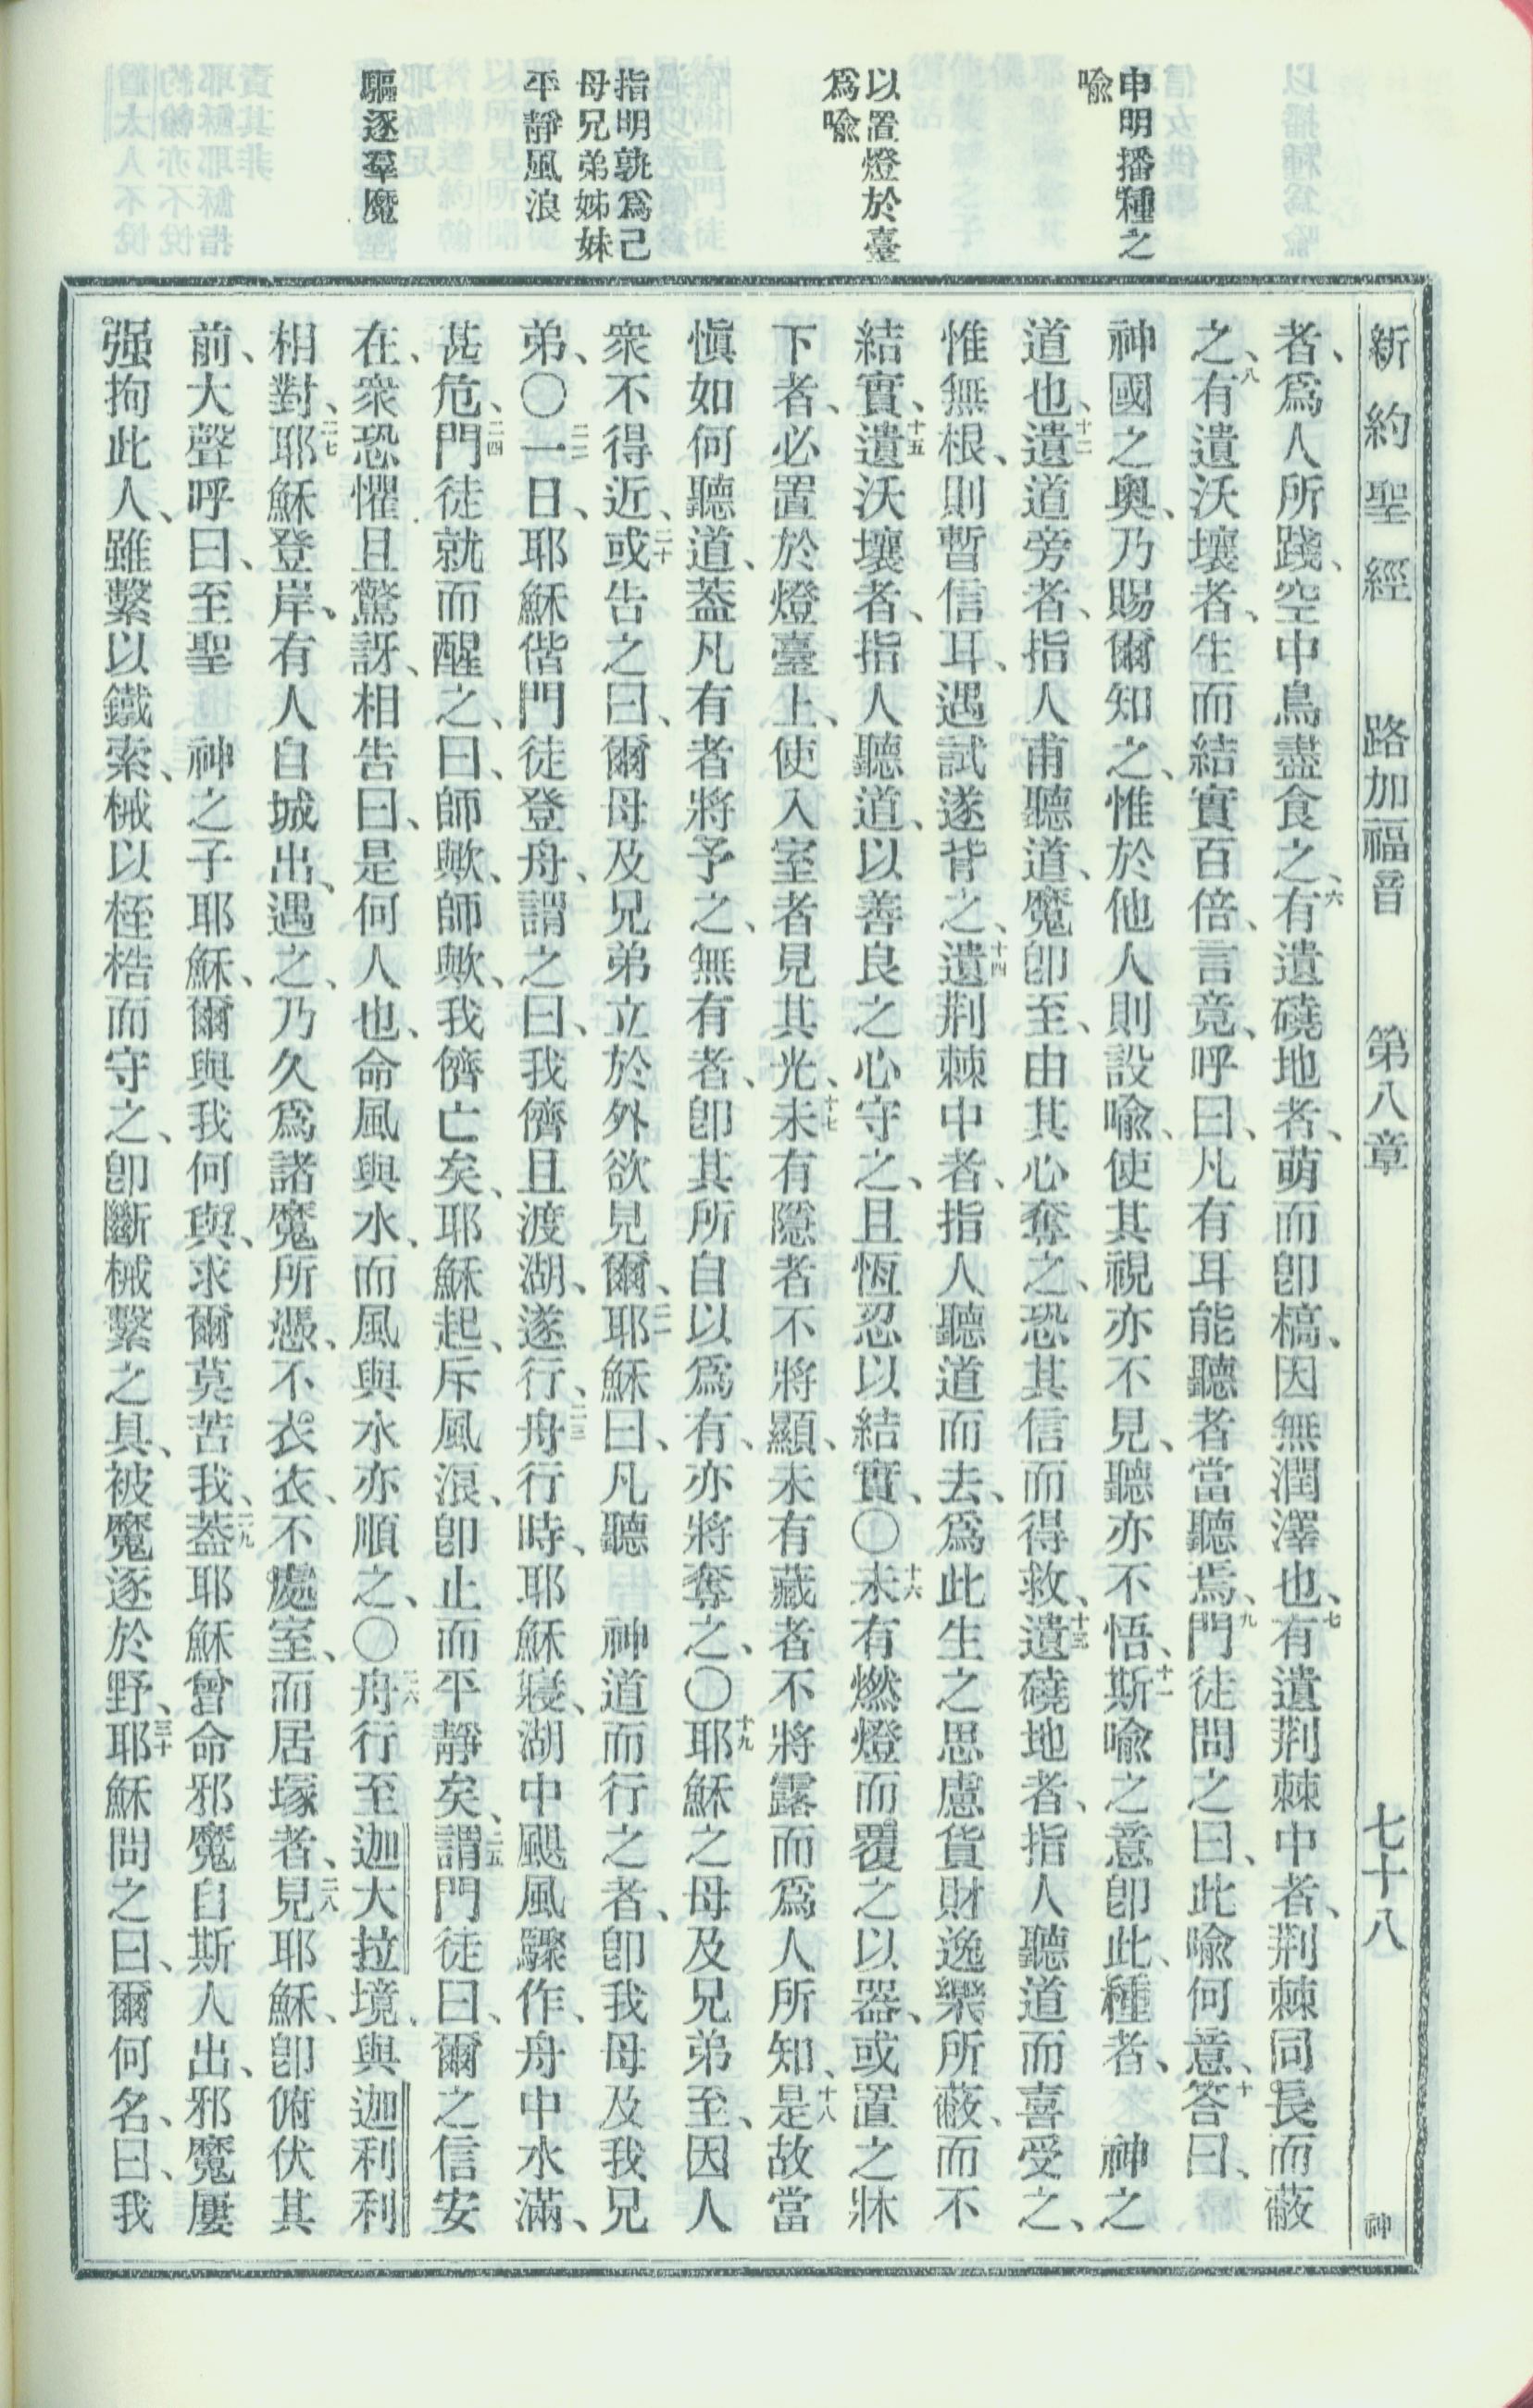 申明播種之
喩
以置燈於臺
爲喩
指明孰爲己
母兄弟姊妹
平靜風浪
驅逐羣魔
新約聖經 路加福音 第八章 七十八 神
者、爲人所踐、空中鳥盡食之、六有遺磽地者、萌而卽槁、因無潤澤也、七有遺荆棘中者、荆棘同長而蔽
之、八有遺沃壤者、生而結實百倍、言竟、呼曰、凡有耳能聽者當聽焉、九門徒問之曰、此喩何意、十答曰、
神國之奧、乃賜爾知之、惟於他人則設喩、使其視亦不見、聽亦不悟、十一斯喩之意卽此、種者、 神之
道也、十二遺道旁者、指人甫聽道、魔卽至、由其心奪之、恐其信而得救、十三遺磽地者、指人聽道而喜受之、
惟無根、則暫信耳、遇試遂背之、十四遺荆棘中者、指人聽道而去、爲此生之思慮貨財逸樂所蔽、而不
結實、十五遺沃壤者、指人聽道、以善良之心守之、且恆忍以結實、〇十六未有燃燈而覆之以器、或置之牀
下者、必置於燈臺上、使入室者見其光、十七未有隱者不將顯、未有藏者不將露而爲人所知、十八是故當
愼如何聽道、蓋凡有者將予之、無有者、卽其所自以爲有、亦將奪之、〇十九耶穌之母及兄弟至、因人
衆不得近、二十或告之曰、爾母及兄弟立於外欲見爾、二一耶穌曰、凡聽 神道而行之者、卽我母及我兄
弟、〇二二一日、耶穌偕門徒登舟、謂之曰、我儕且渡湖、遂行、二三舟行時、耶穌寢、湖中颶風驟作、舟中水滿、
甚危、二四門徒就而醒之、曰、師歟、師歟、我儕亡矣、耶穌起、斥風浪、卽止而平靜矣、二五謂門徒曰、爾之信安
在、衆恐懼且驚訝、相告曰、是何人也、命風與水、而風與水亦順之、〇二六舟行至迦大拉境、與迦利利
相對、二七耶穌登岸、有人自城出、遇之、乃久爲諸魔所憑、不衣衣、不處室、而居塚者、二八見耶穌、卽俯伏其
前、大聲呼曰、至聖 神之子耶穌、爾與我何與、求爾莫苦我、二九蓋耶穌曾命邪魔自斯人出、邪魔屢
强拘此人、雖繫以鐵索、械以桎梏而守之、卽斷械繫之具、被魔逐於野、三十耶穌問之曰、爾何名、曰、我